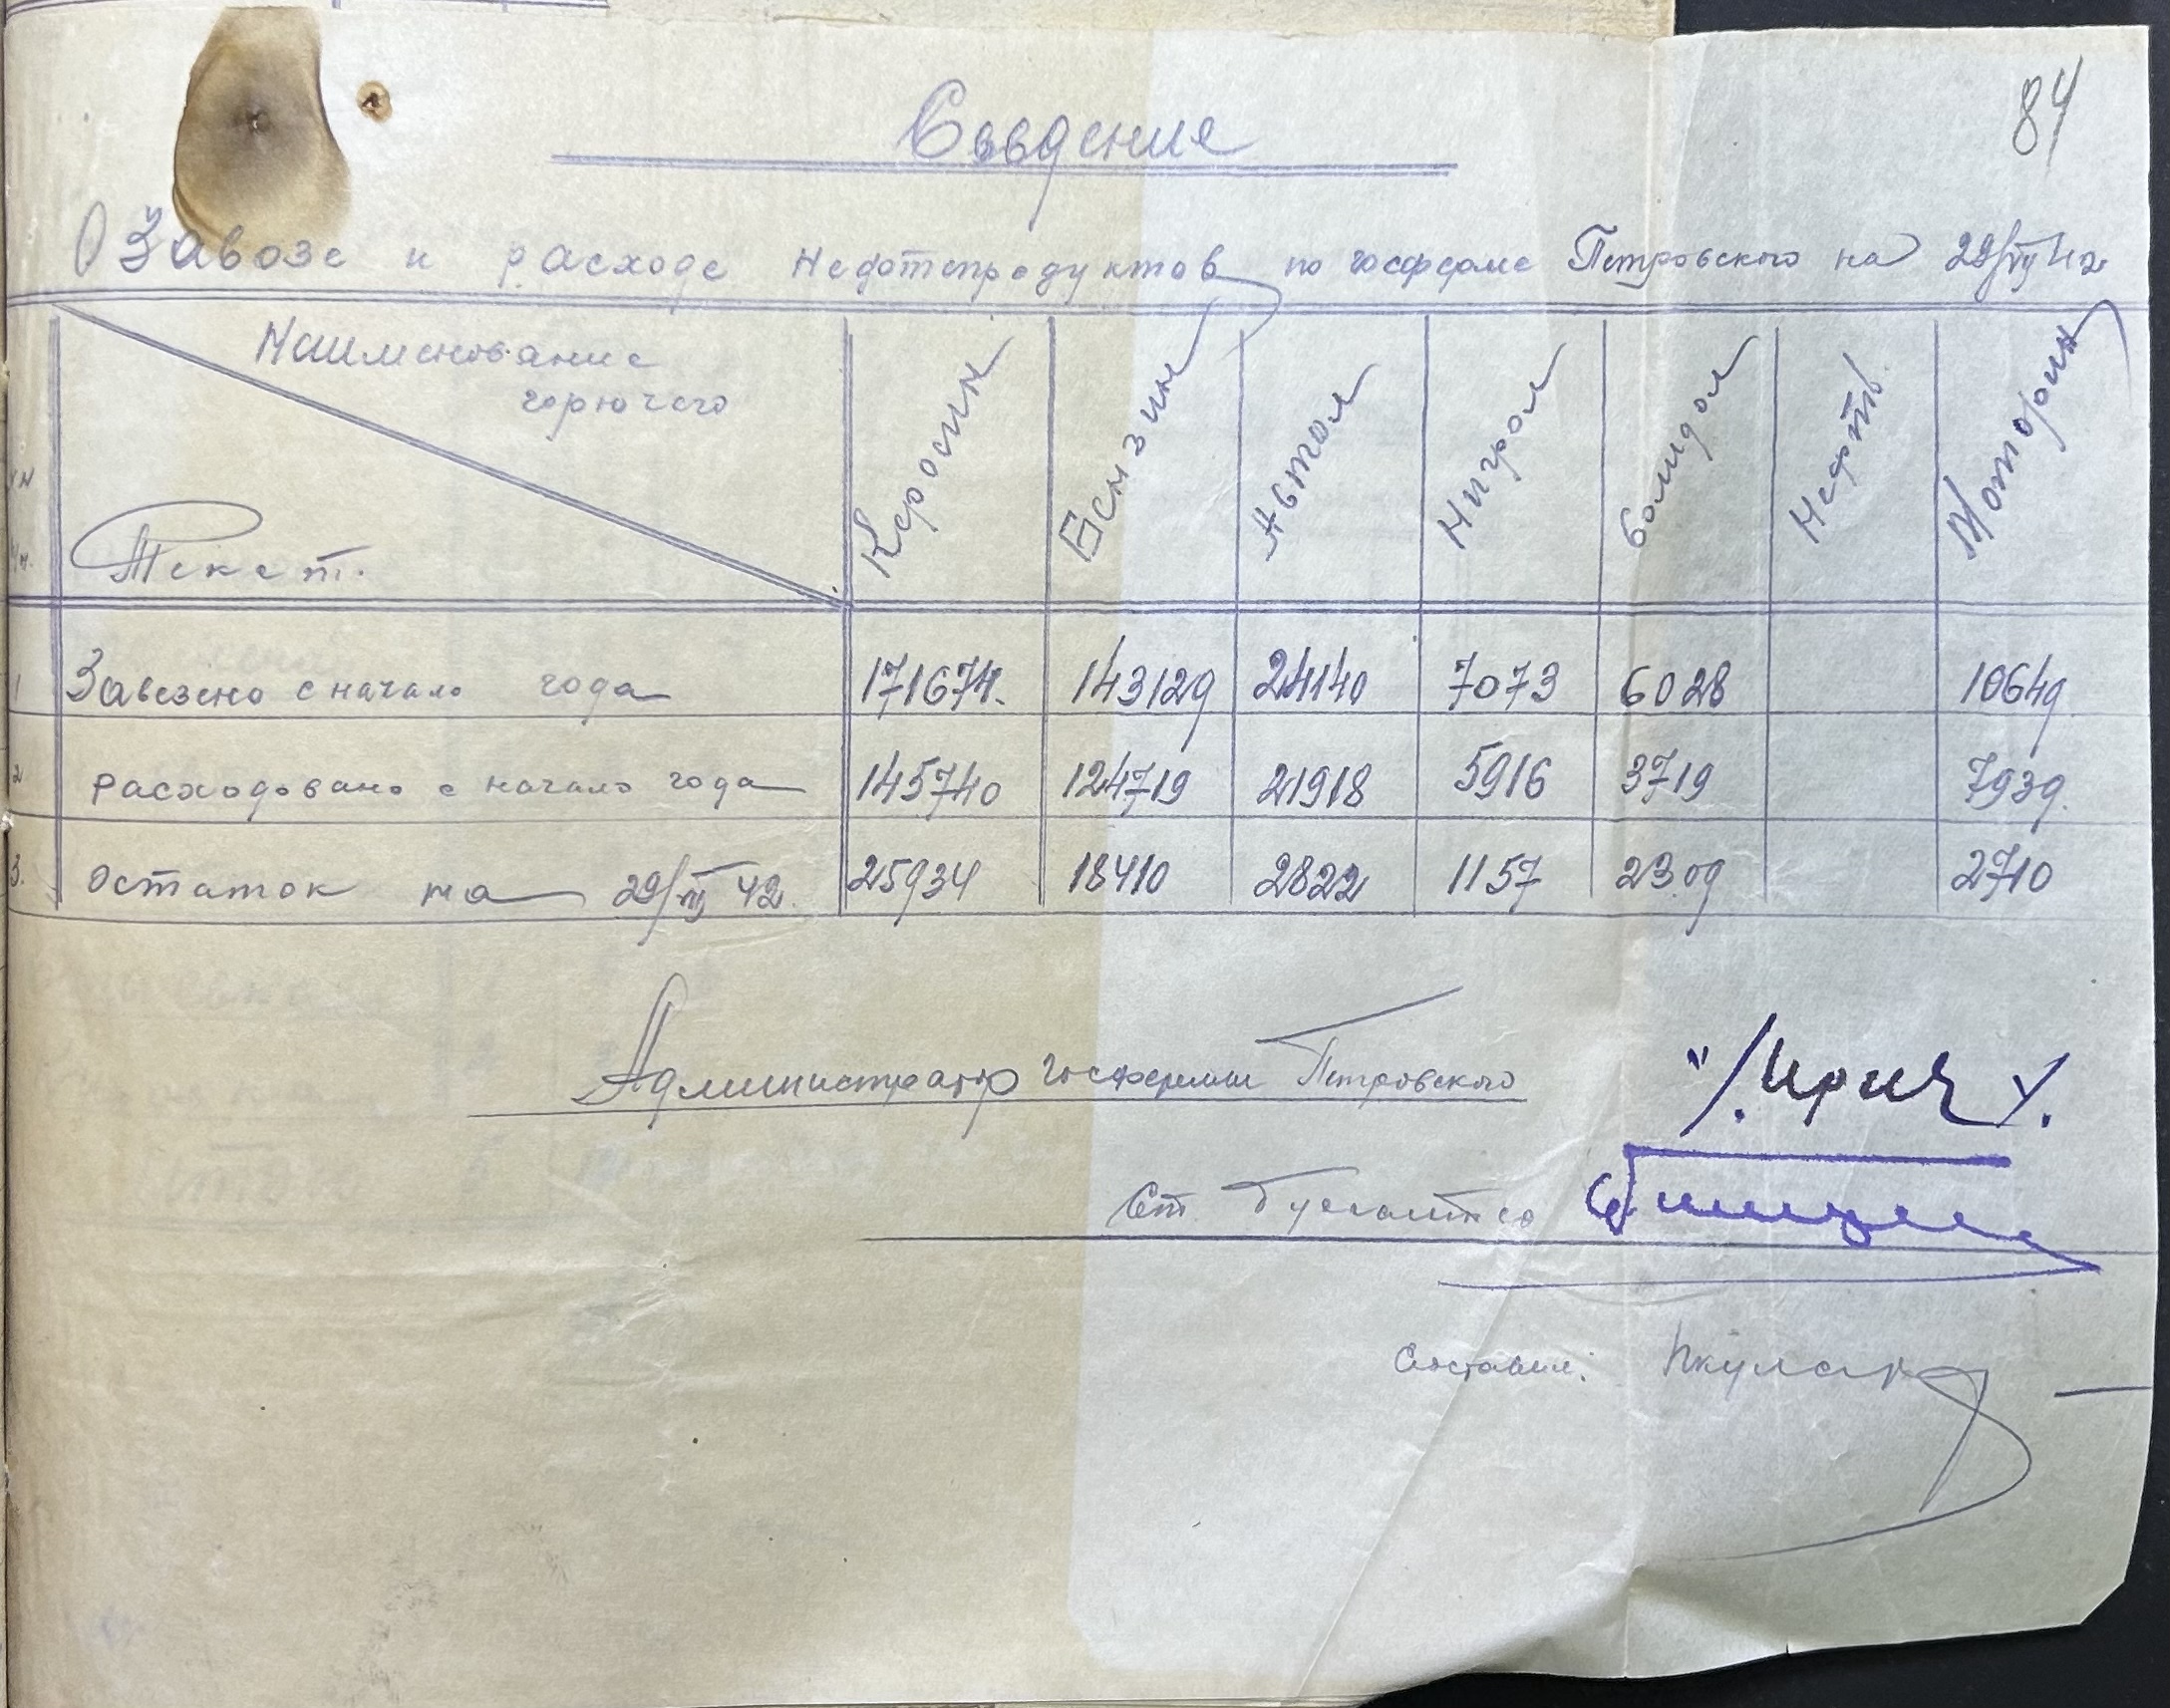 84
Сведение
О Завозе и расходе Нефотепродуктов по госферме Петровского на 29/VII 42
Наименование
горючего
Текст.
Керосин Бензин Автол Нигрол Солидол Нефть Моторин
1 Завезено с начало года 171674. 143129 24140 7073 6028 10649
2 расходовано с начало года 145740 124719 21918 5916 3719 7939.
3. Остаток на 29/VII 42. 25934 18410 2822 1157 2309 2710
Администратор госфермы Петровского "/. Ирич /.
Ст. Бухгалтер
Составил: